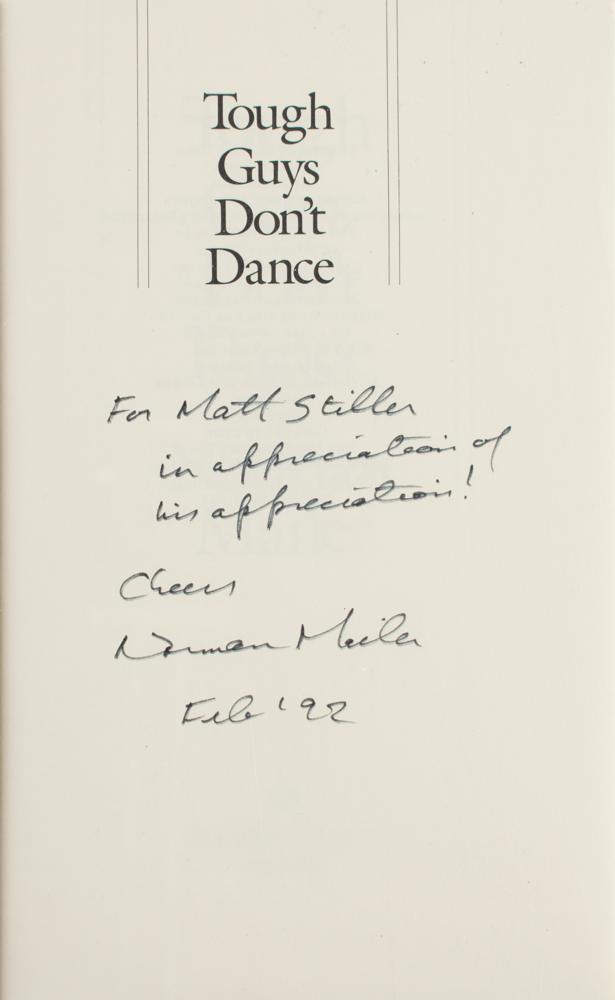 Tough
Guys
Don't
Dance
For Matt Stiller
in appreciation of
his appreciation!
Cheers
Norman Mailer
Feb '92